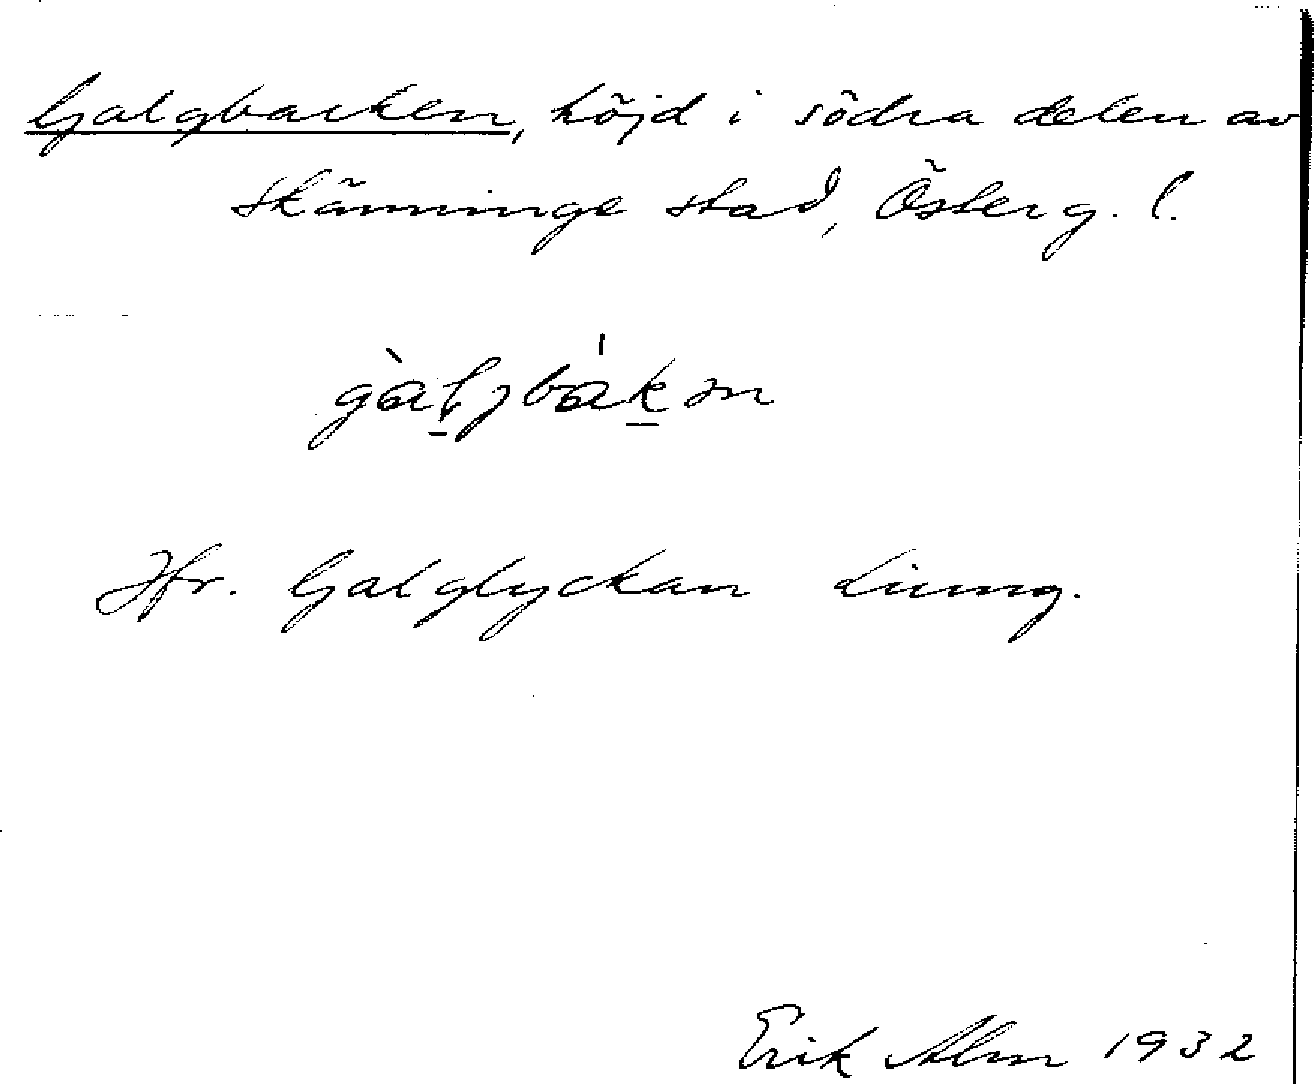 Galgbacken, höjd i södra delen av
Skänninge stad, Österg. l.
Jfr. Galglyckan
Erik Alm 1932